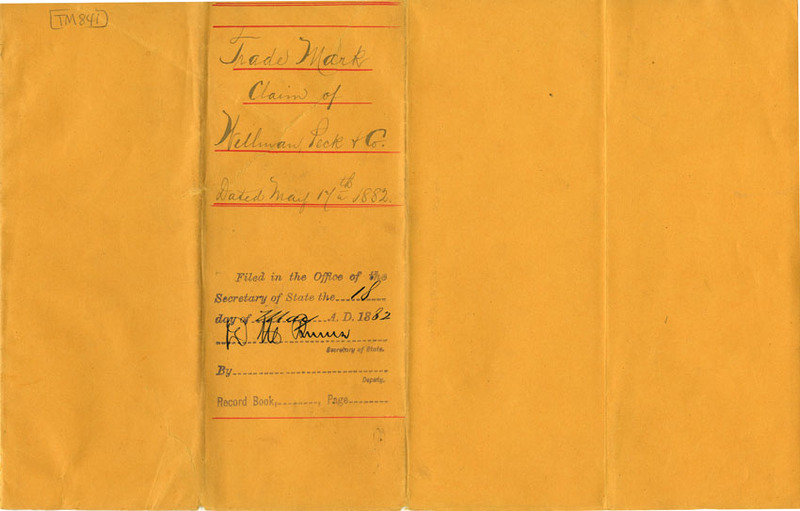 TM841
Trade Mark
Claim of
Wellman Peck & Co.
Dated May 17th 1882.
Filed in the Office of the
Secretary of State the 18
day of May A. D. 1882
D M
Secretary of State.
By
Deputy.
Record Book, , Page